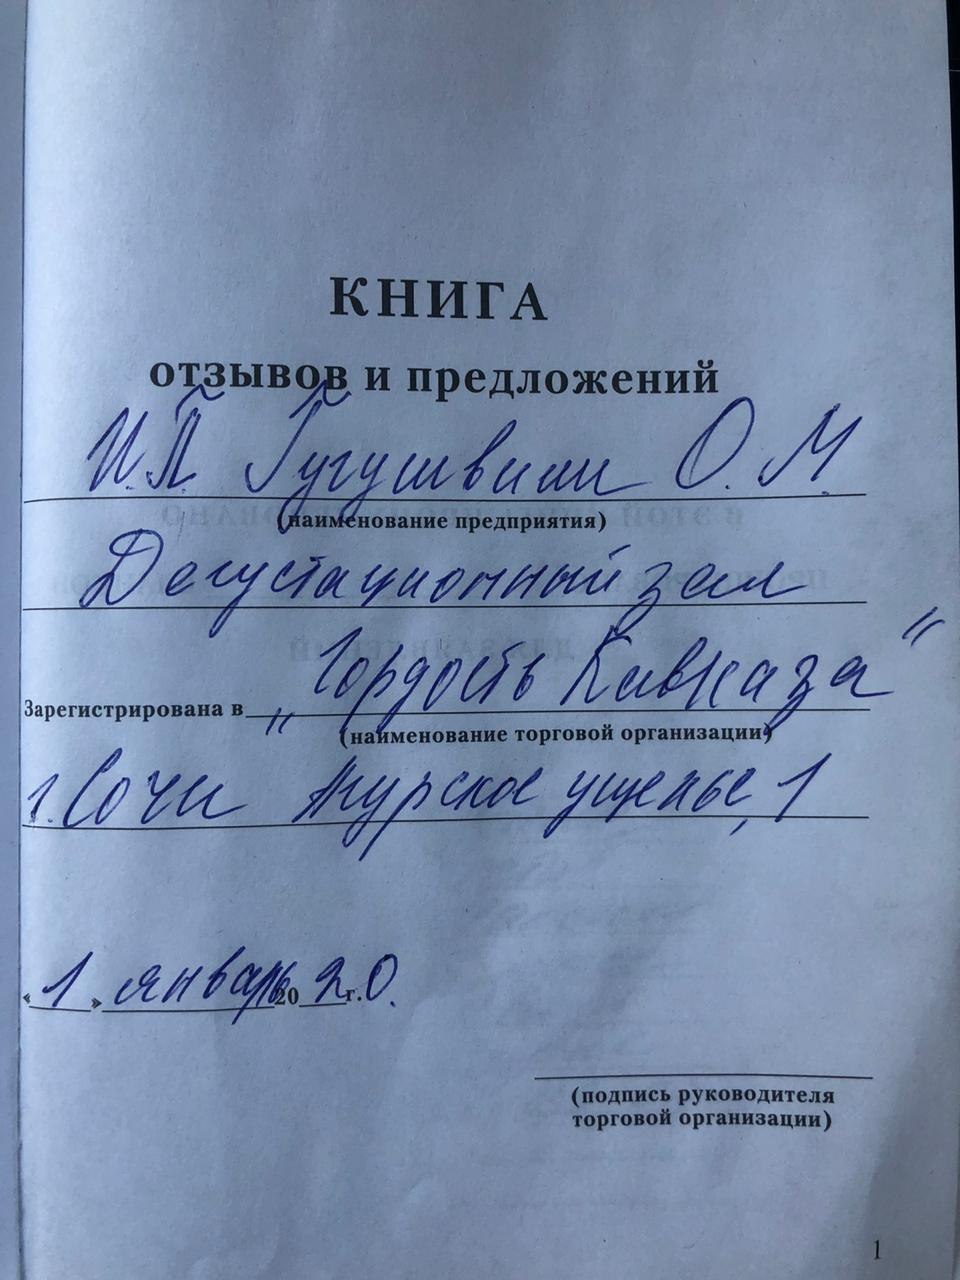 КНИГА
отзывов и предложений
И.П. Гугушвили О.М.
(наименование предприятия)
Дегустационный зал
Зарегистрирована в „Гордость Кавказа“
(наименование торговой организации)
г. Сочи Агурское ущелье, 1
«1» январь 20 2 г. 0.
(подпись руководителя
торговой организации)
1